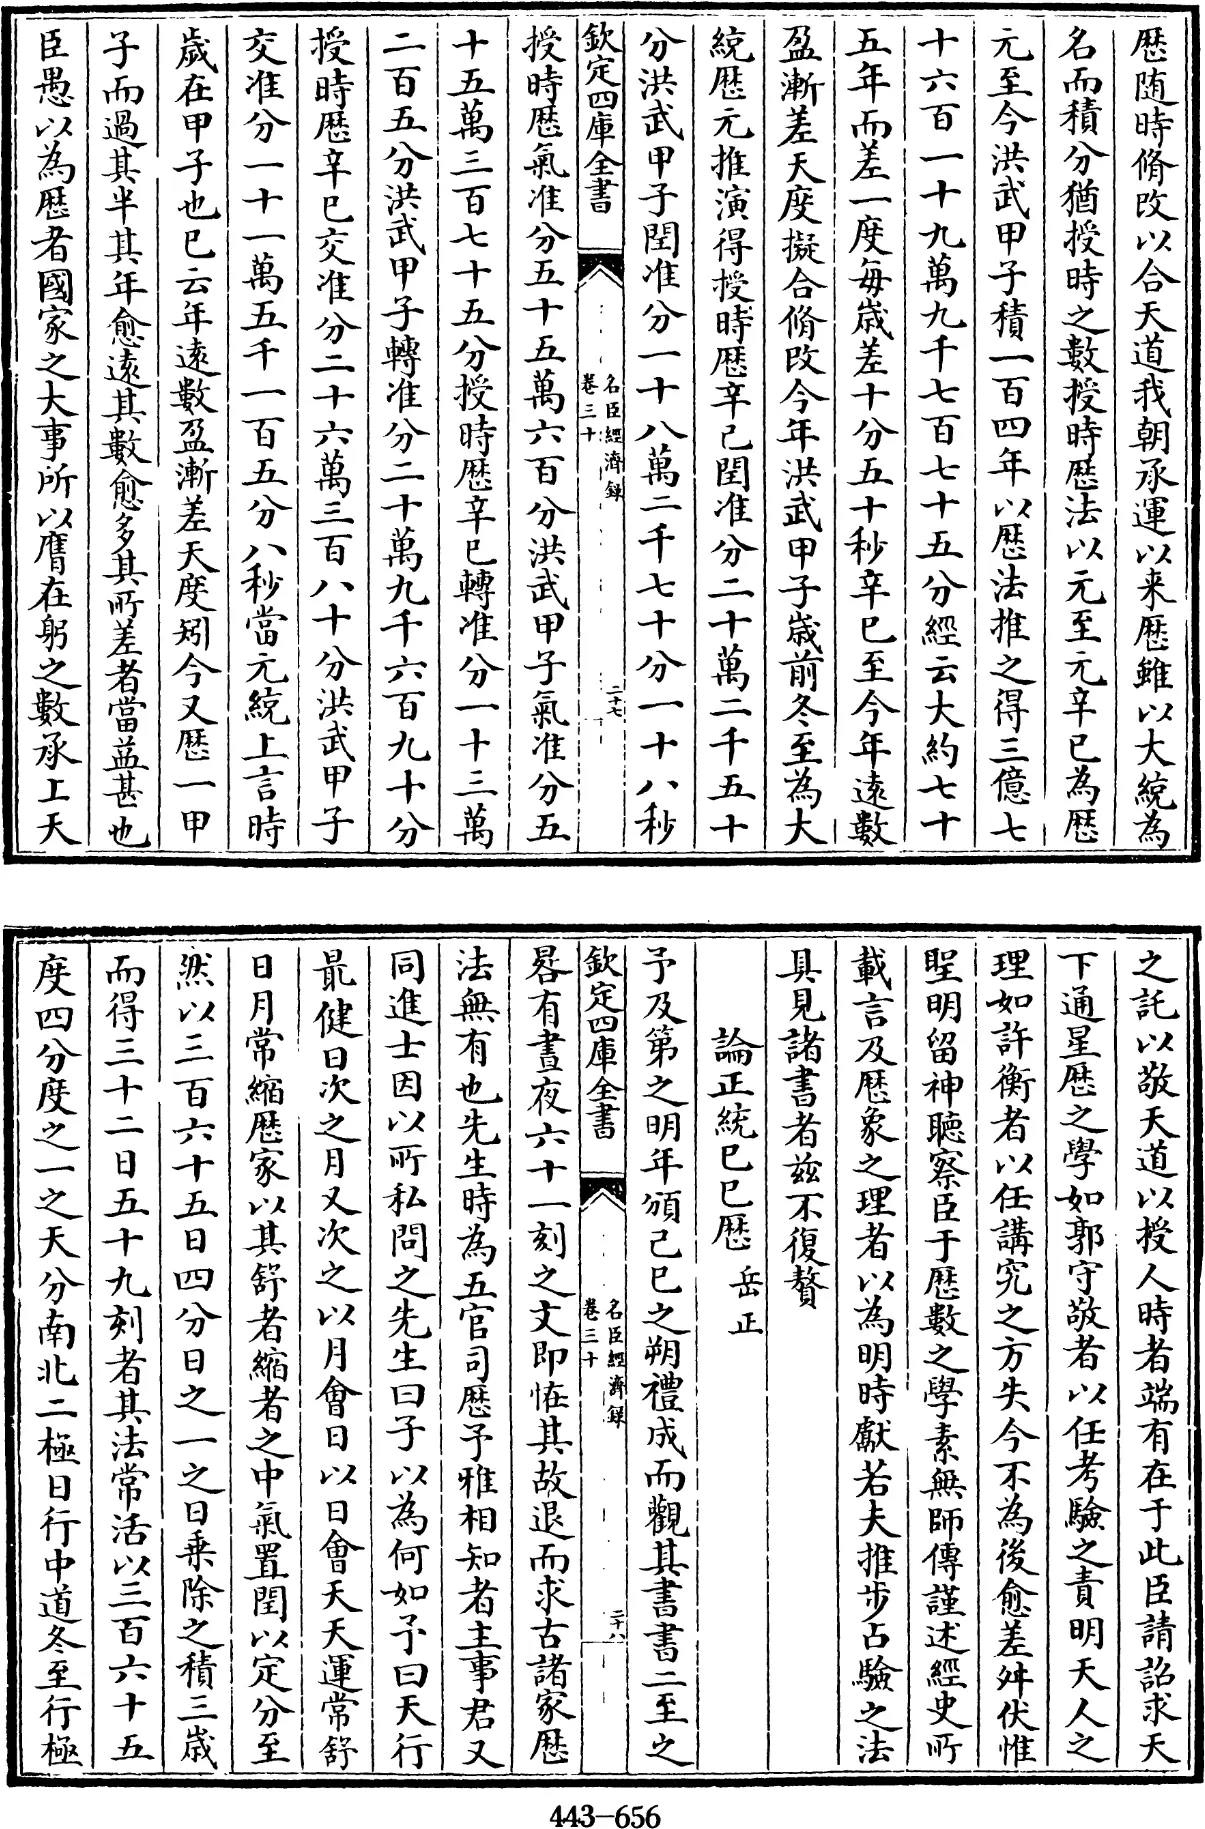 歴随時脩改以合天道我朝承運以来歴雖以大統為
名而積分猶授時之數授時歴法以元至元辛巳為歴
元至今洪武甲子積一百四年以歴法推之得三億七
十六百一十九萬九千七百七十五分經云大約七十
五年而差一度每歳差十分五十秒辛巳至今年逺數
盈漸差天度擬合脩改今年洪武甲子歳前冬至為大
統歴元推演得授時歴辛己閏准分二十萬二千五十
分洪武甲子閏准分一十八萬二千七十分一十八秒
欽定四庫全書
名臣經濟録
卷三十
二十七
授時歴氣准分五十五萬六百分洪武甲子氣准分五
十五萬三百七十五分授時歴辛巳轉准分一十三萬
二百五分洪武甲子轉准分二十萬九千六百九十分
授時歴辛巳交准分二十六萬三百八十分洪武甲子
交准分一十一萬五千一百五分八秒當元統上言時
歳在甲子也巳云年逺數盈漸差天度矧今又歴一甲
子而過其半其年愈逺其數愈多其所差者當益甚也
臣愚以為歴者國家之大事所以膺在躬之數承上天
之託以敬天道以授人時者端有在于此臣請詔求天
下通星歴之學如郭守敬者以任考驗之責明天人之
理如許衡者以任講究之方失今不為後愈差舛伏惟
聖明留神聽察臣于歴數之學素無師傳謹述經史所
載言及歴象之理者以為明時獻若夫推步占驗之法
具見諸書者兹不復贅
論正統巳巳歴　岳正
予及第之明年頒己巳之朔禮成而觀其書書二至之
欽定四庫全書
名臣經濟録
卷三十
二十八
晷有晝夜六十一刻之文即恠其故退而求古諸家歴
法無有也先生時為五官司歴予雅相知者主事君又
同進士因以所私問之先生曰子以為何如予曰天行
最健日次之月又次之以月會日以日會天天運常舒
日月常縮歴家以其舒者縮者之中氣置閏以定分至
然以三百六十五日四分日之一之日乗除之積三歳
而得三十二日五十九刻者其法常活以三百六十五
度四分度之一之天分南北二極日行中道冬至行極
443-656